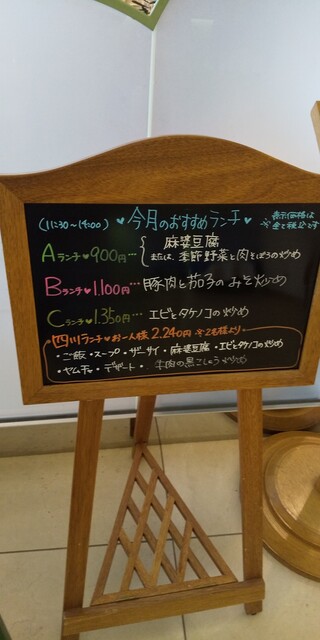 (11:30~14:00) ♥今月のおすすめランチ♥ ※表示価格は全て税込です
Aランチ♥900円… 麻婆豆腐
または、季節野菜と肉そぼろの炒め
Bランチ♥1.100円…豚肉と茄子のみそ炒め
Cランチ♥1.350円…エビとタケノコの炒め
四川ランチ♥お一人様 2.240円 ※2名様より
・ご飯・スープ・ザーサイ・麻婆豆腐・エビとタケノコの炒め
・ヤムチャ・デザート・牛肉の黒こしょう炒め